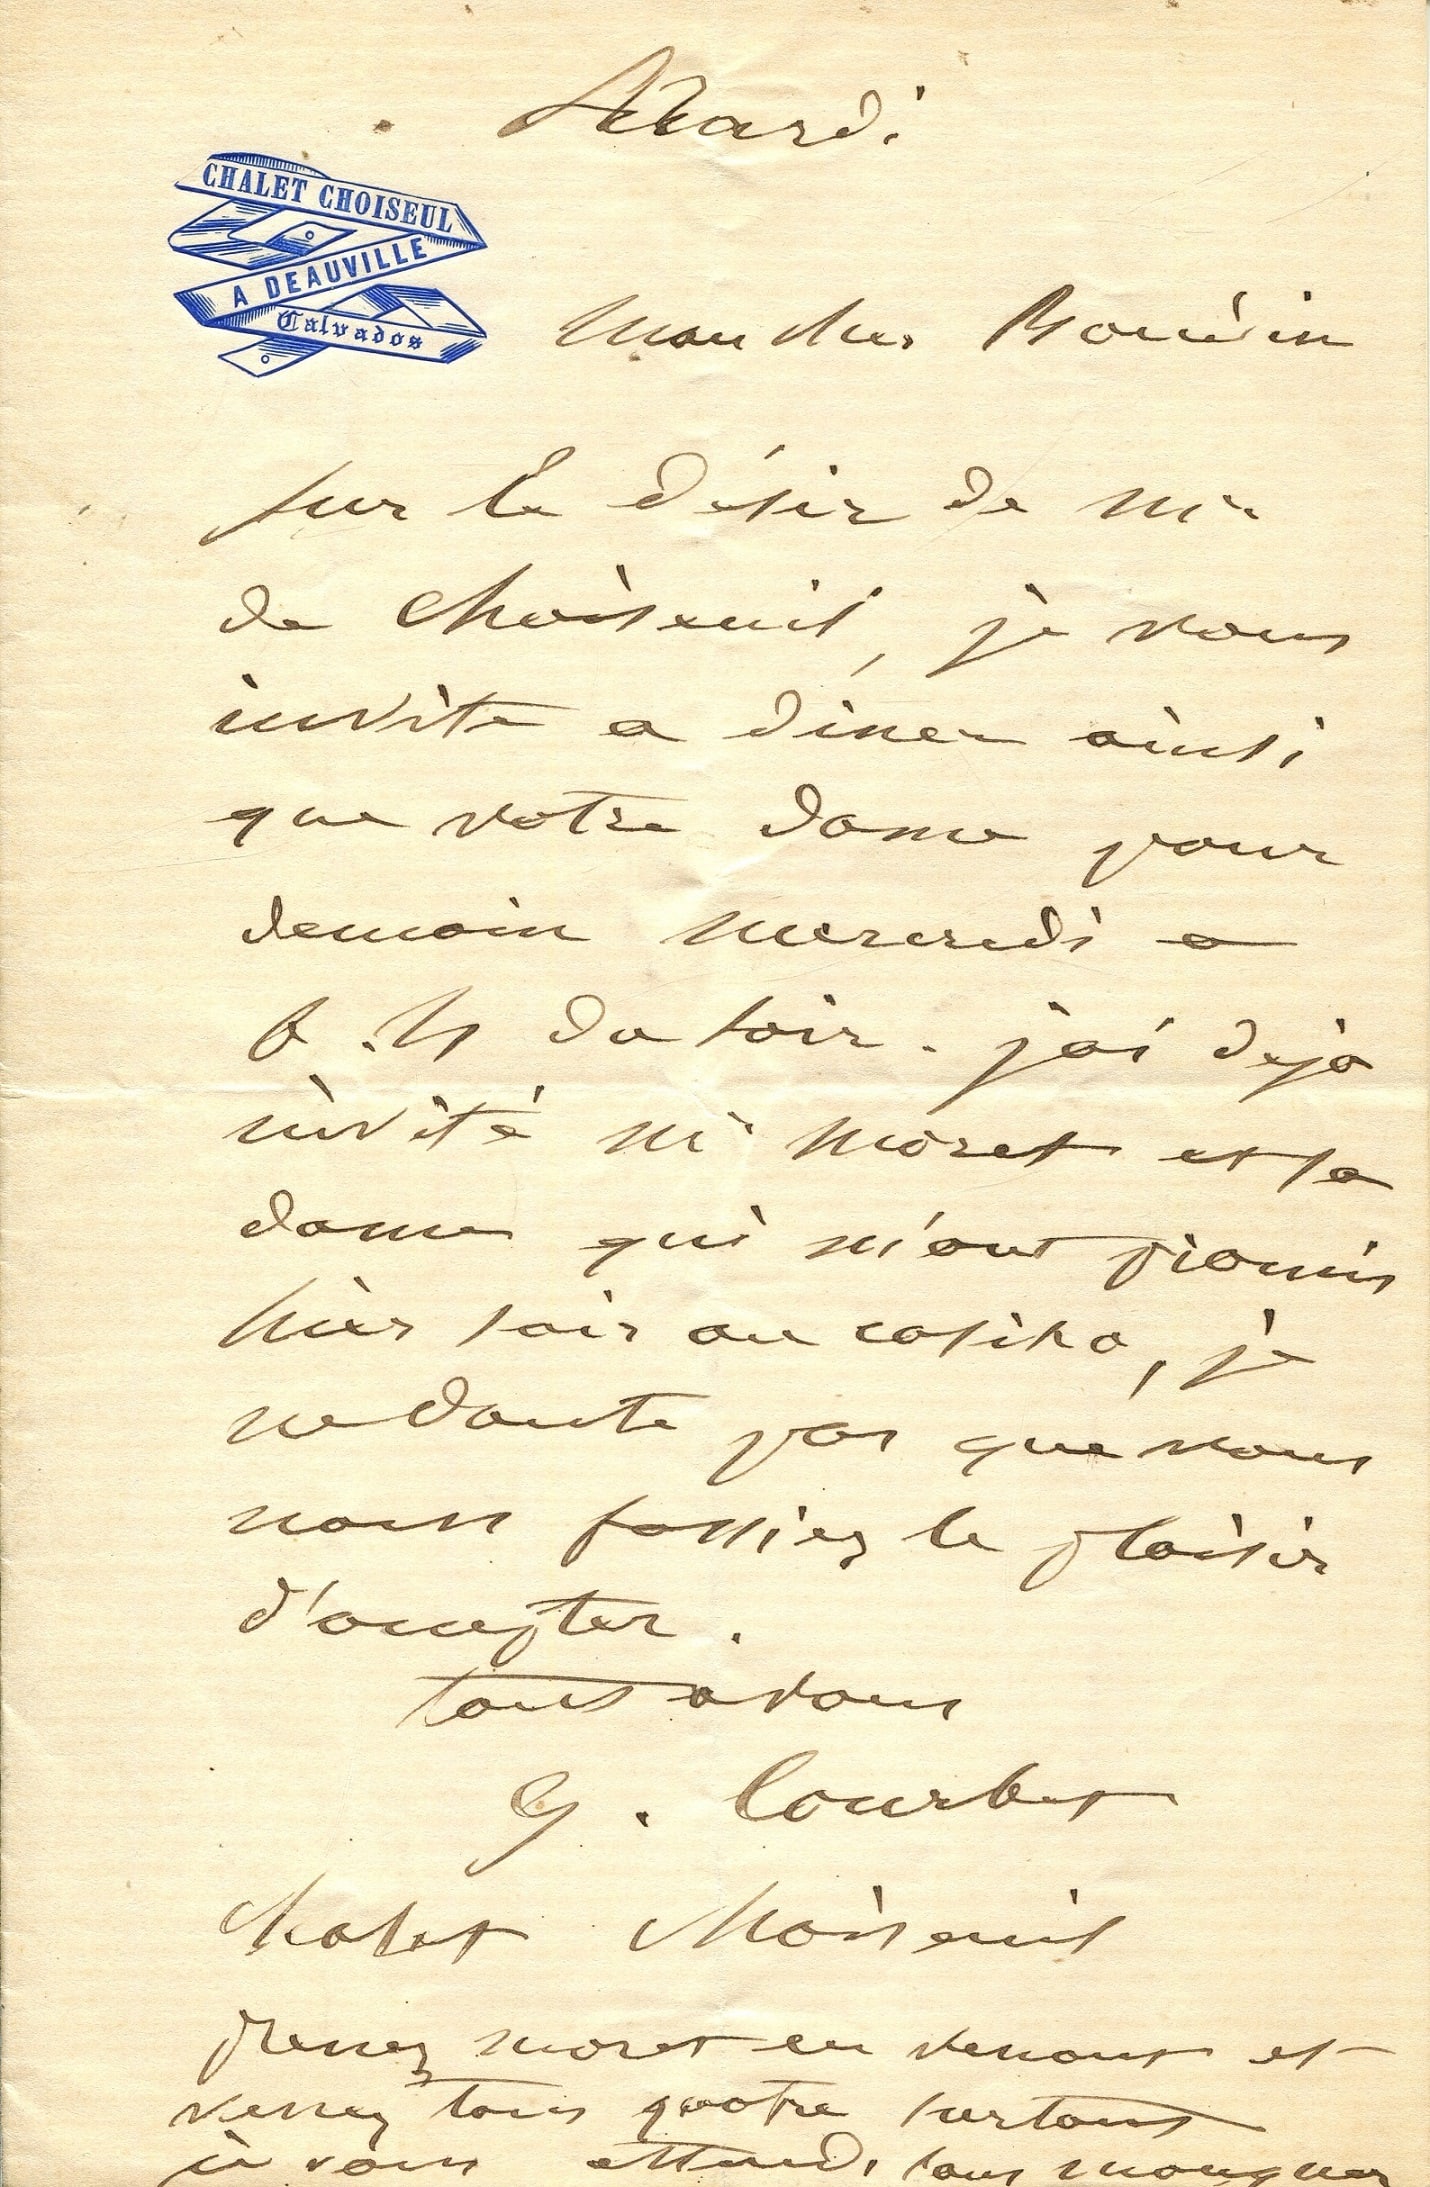 Mardi
CHALET CHOISEUL
A DEAUVILLE
Calvados
Mon cher Boudin
sur le désir de mr
de Choiseuil, je vous
invite a diner ainsi
que votre dame pour
demain mercredi a
6 . h du soir . j'ai deja
invité mr moret et sa
dame qui m'ont promis
hier soir au casino, je
ne doute pas que vous
nous fassiez le plaisir
d'accepter .
tout a vous
G . Courbet
chalet Choiseuil
prenez moret en venant et
venez tous quatre surtout
je vous attends sans manquer